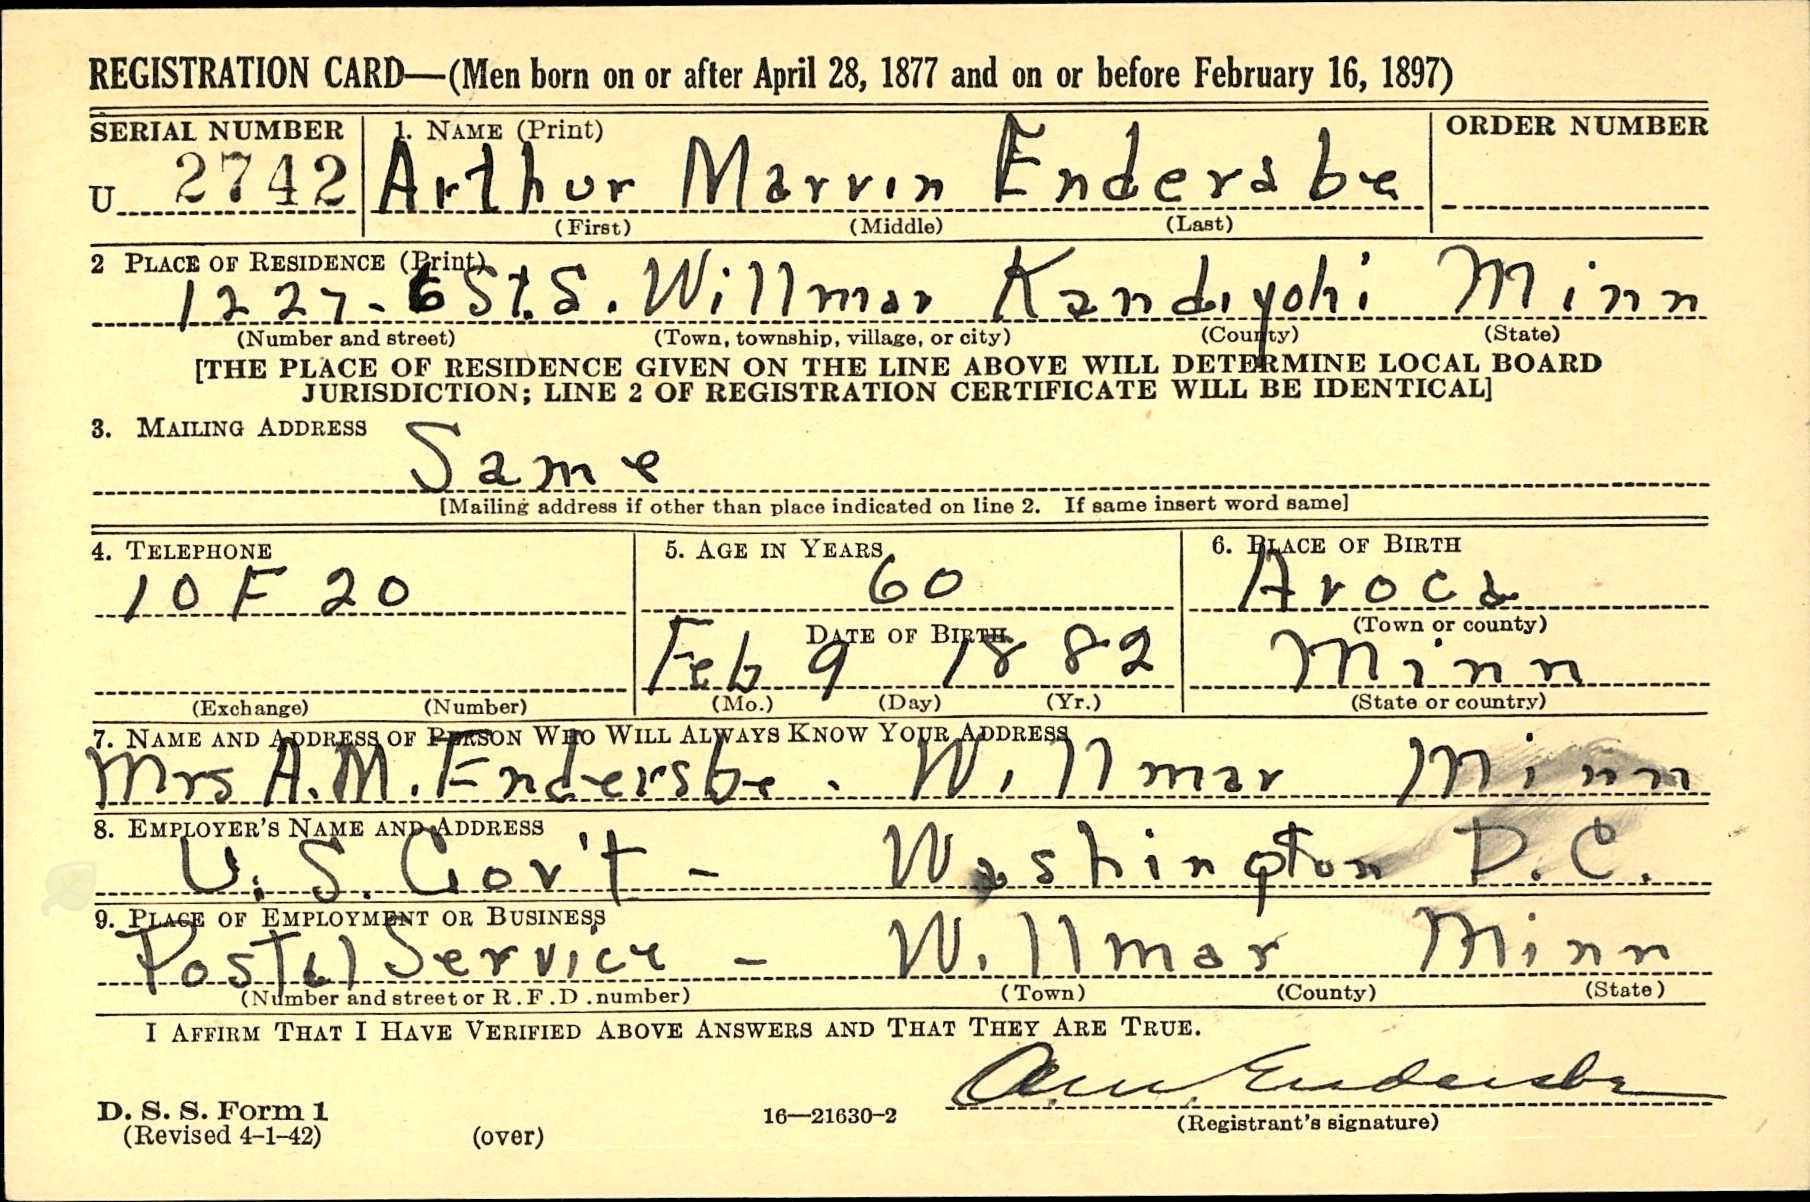 REGISTRATION CARD—(Men born on or after April 28, 1877 and on or before February 16, 1897)
SERIAL NUMBER 1. NAME (Print) ORDER NUMBER
U 2742 Arthur Marvin Endersbe
(First) (Middle) (Last)
2 PLACE OF RESIDENCE (Print)
1227-6 St. S. Willmar Kandiyohi Minn
(Number and street) (Town, township, village, or city) (County) (State)
[THE PLACE OF RESIDENCE GIVEN ON THE LINE ABOVE WILL DETERMINE LOCAL BOARD
JURISDICTION; LINE 2 OF REGISTRATION CERTIFICATE WILL BE IDENTICAL]
3. MAILING ADDRESS
Same
[Mailing address if other than place indicated on line 2. If same insert word same]
4. TELEPHONE 5. AGE IN YEARS 6. PLACE OF BIRTH
10 F 20 60 Aroca
(Town or county)
DATE OF BIRTH
Feb 9 1882 Minn
(Exchange) (Number) (Mo.) (Day) (Yr.) (State or country)
7. NAME AND ADDRESS OF PERSON WHO WILL ALWAYS KNOW YOUR ADDRESS
Mrs A.M. Endersbe. Willmar Minn
8. EMPLOYER'S NAME AND ADDRESS
U.S. Gov't - Washington D.C.
9. PLACE OF EMPLOYMENT OR BUSINESS
Postal Service - Willmar Minn
(Number and street or R.F.D. number) (Town) (County) (State)
I AFFIRM THAT I HAVE VERIFIED ABOVE ANSWERS AND THAT THEY ARE TRUE.
A.M. Endersbe
D. S. S. Form 1
(Revised 4-1-42) (over) 16—21630-2 (Registrant's signature)